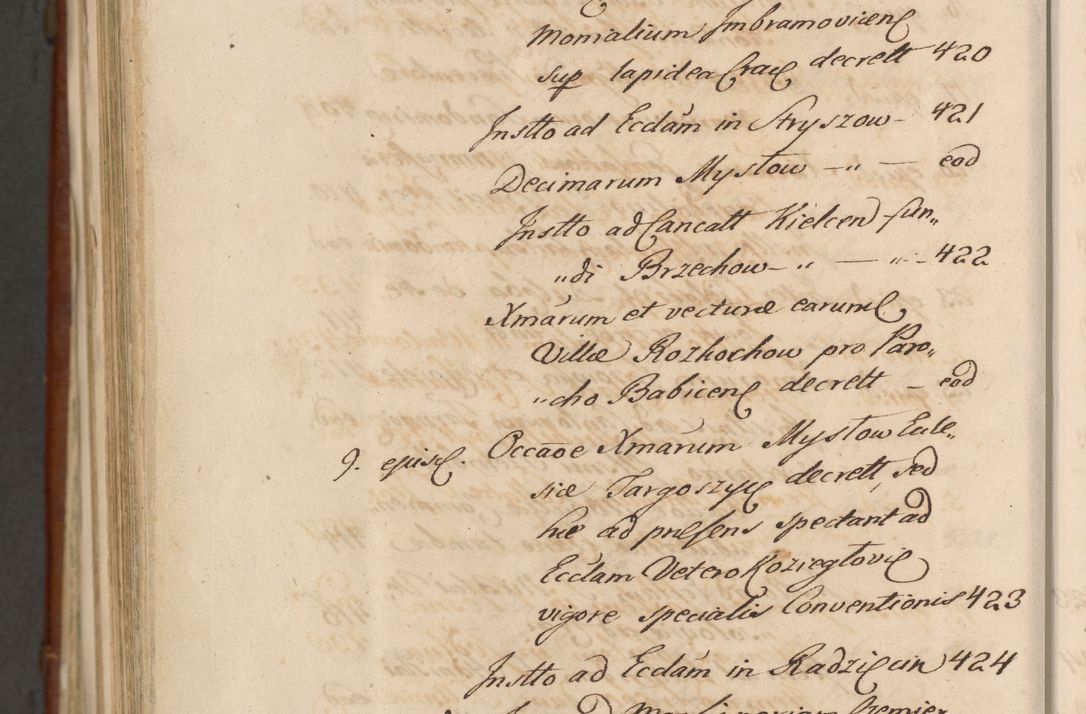 Monialium Imbramovicen
sup lapidea Crac decrett 420
Instto ad Ecclam in Stryszow - 421
Decimarum Mysłow - " - eod
Instto ad Cancatt Kielcen fun„
„di Brzechow - " - " - 422
Xmarum et vecturæ earum
Villæ Rozkochow pro Paro„
„cho Babicen decrett - eod
9. episc. Occaõe Xmarum Mysłow Eccle„
siæ Targoszyc decrett, sed
hæ ad præsens spectant ad
Ecclam Vetero Koziegłovic
vigore specialis Conventionis 423
Instto ad Ecclam in Radziecin 424